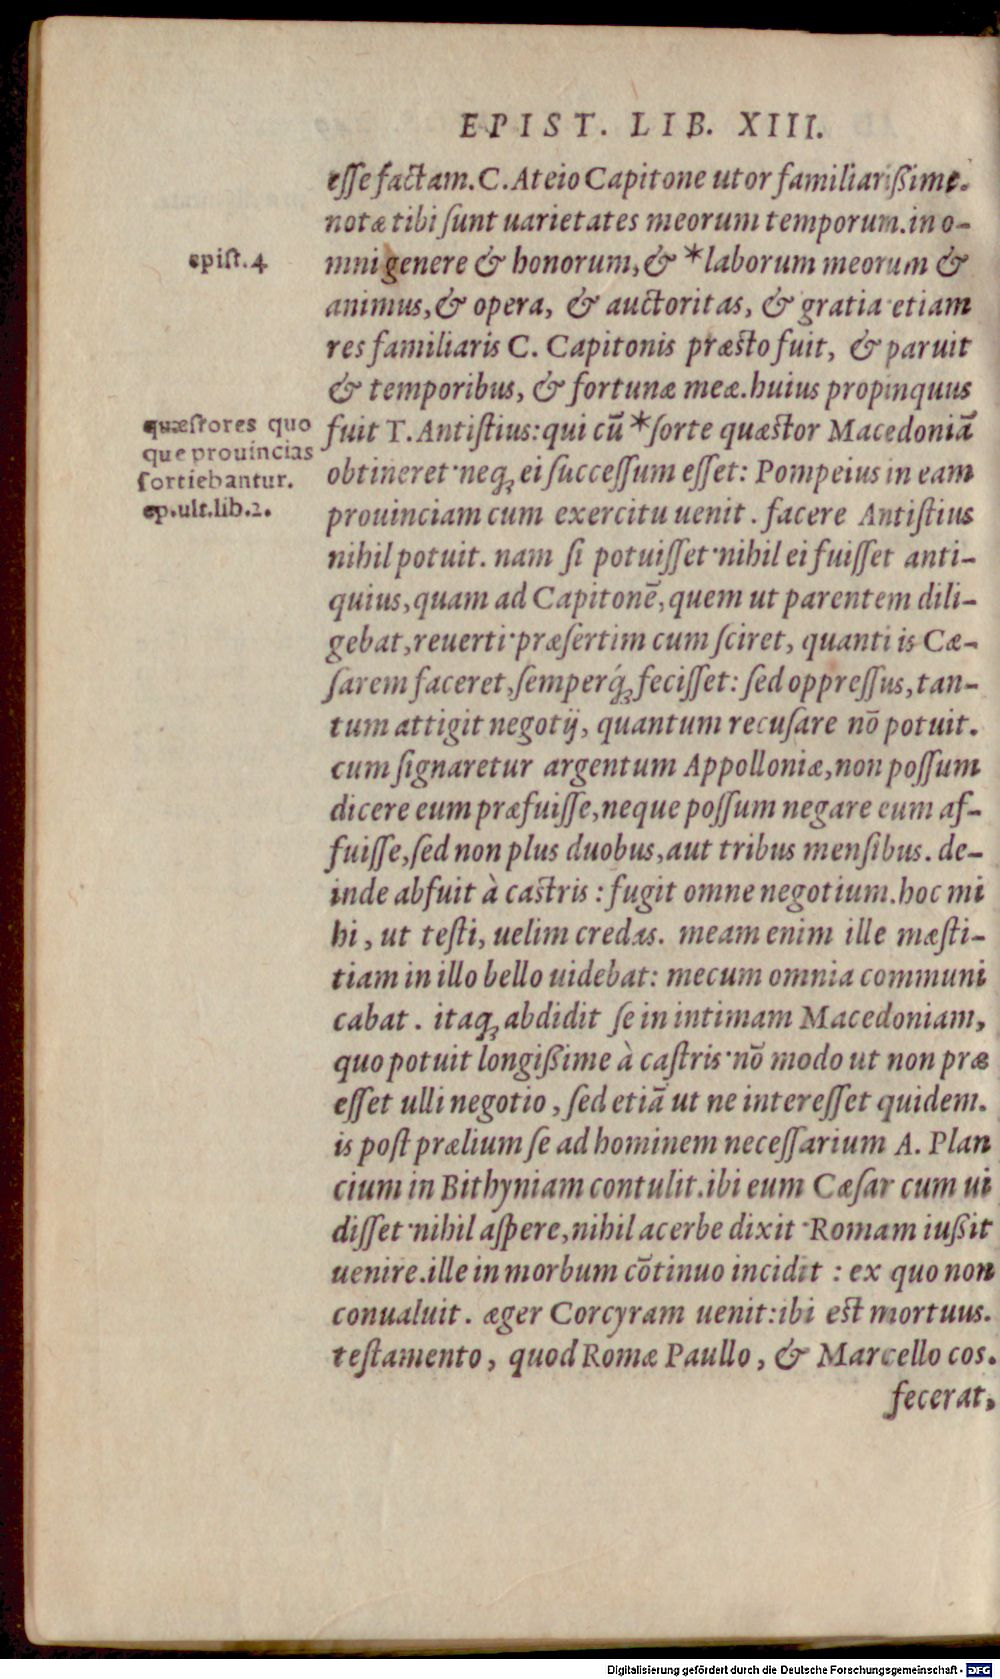 EPIST. LIB. XIII.
esse factam. C. Ateio Capitone utor familiarißime.
notæ tibi sunt uarietates meorum temporum. in o-
epist. 4
mni genere & honorum, & *laborum meorum &
animus, & opera, & auctoritas, & gratia· etiam
res familiaris C. Capitonis præsto fuit, & paruit
& temporibus, & fortunæ meæ. huius propinquus
quæstores quo
que prouincias
sortiebantur.
ep. ult. lib. 2.
fuit T. Antistius: qui cū *sorte quæstor Macedoniā
obtineret· neq; ei successum esset: Pompeius in eam
prouinciam cum exercitu uenit. facere Antistius
nihil potuit. nam si potuisset· nihil ei fuisset anti-
quius, quam ad Capitonē, quem ut parentem dili-
gebat, reuerti· præsertim cum sciret, quanti is Cæ-
sarem faceret, semperq́; fecisset: sed oppressus, tan-
tum attigit negotij, quantum recusare nō potuit.
cum signaretur argentum Appolloniæ, non possum
dicere eum præfuisse, neque possum negare eum af-
fuisse, sed non plus duobus, aut tribus mensibus. de-
inde abfuit à castris: fugit omne negotium. hoc mi
hi, ut testi, uelim credas. meam enim ille mæsti-
tiam in illo bello uidebat: mecum omnia communi
cabat. itaq; abdidit se in intimam Macedoniam,
quo potuit longißime à castris· nō modo ut non præ
esset ulli negotio, sed etiā ut ne interesset quidem.
is post prælium se ad hominem necessarium A. Plan
cium in Bithyniam contulit. ibi eum Cæsar cum ui
disset· nihil aspere, nihil acerbe dixit· Romam iußit
uenire. ille in morbum cōtinuo incidit: ex quo non
conualuit. æger Corcyram uenit: ibi est mortuus.
testamento, quod Romæ Paullo, & Marcello cos.
fecerat,
Digitalisierung gefördert durch die Deutsche Forschungsgemeinschaft - DFG